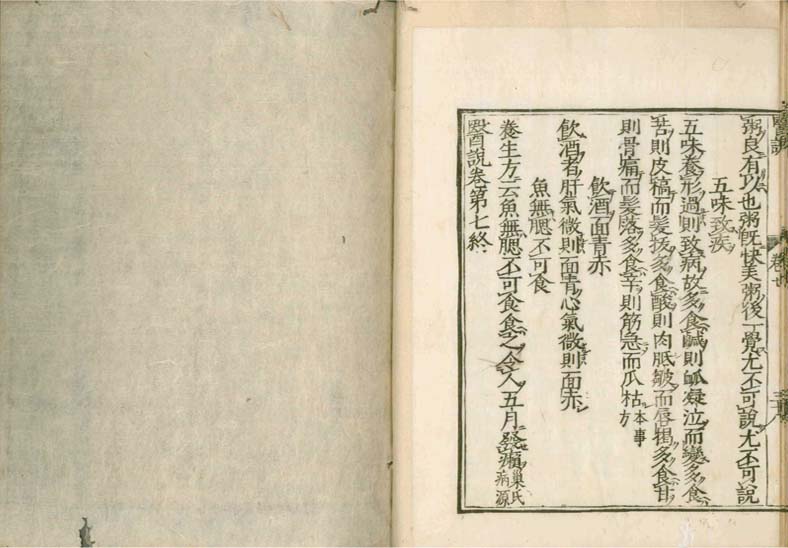 粥良有以也粥旣快美粥後一覺尤不可說尤不可說
五味致疾
五味養形過則致病故多食鹹則脉凝泣而變多食
苦則皮槁而髮拔多食酸則肉胝皺而唇揭多食甘
則骨痛而髮落多食辛則筋急而爪枯本事方
飲酒面青赤
飲酒者肝氣微則面青心氣微則面赤
魚無腮不可食
養生方云魚無腮不可食食之令人五月發癩巢氏病源
醫說卷第七終
醫說
卷七